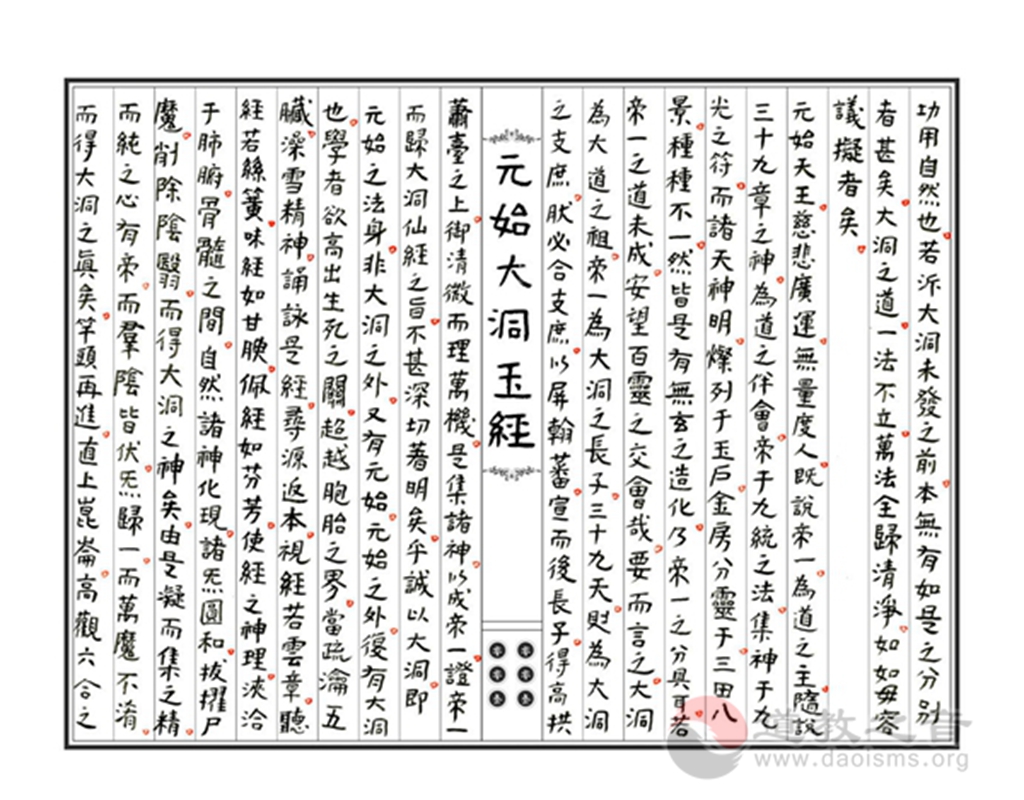 功用自然也若泝大洞未發之前本無有如是之分別
者甚矣大洞之道一法不立萬法全歸清淨如如毋容
議擬者矣
元始天王慈悲廣運無量度人既說帝一為道之主隨說
三十九章之神為道之伴會帝于九統之法集神于九
光之符而諸天神明燦列于玉戶金房分靈于三田八
景種種不一然皆是有無玄之造化乃帝一之分具耳若
帝一之道未成安望百靈之交會哉要而言之大洞
為大道之祖帝一為大洞之長子三十九天則為大洞
之支庶狀必合支庶以屏翰蕃宣而後長子得高拱
元始大洞玉經
蕭臺之上御清微而理萬機是集諸神以成帝一證帝一
而歸大洞仙經之旨不甚深切著明矣乎誠以大洞即
元始之法身非大洞之外又有元始元始之外復有大洞
也學者欲高出生死之關超越胞胎之界當疏瀹五
臟澡雪精神誦詠是經尋源返本視經若雲章聽
經若絲簧味經如甘腴佩經如芬芳使經之神理浹洽
于肺腑骨髓之間自然諸神化現諸炁圓和拔擢尸
魔削除陰翳而得大洞之神矣由是凝而集之精
而純之心有帝而羣陰皆伏炁歸一而萬魔不淆
而得大洞之眞矣竿頭再進直上崑崙高觀六合之
道教之音
www.daoisms.org